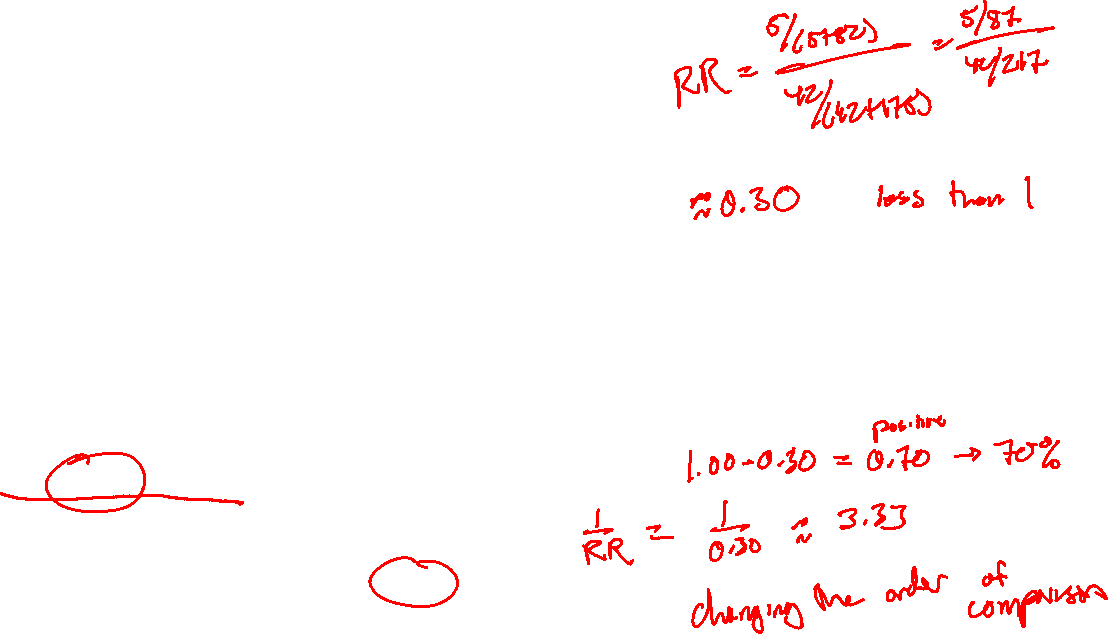 RR = 5/(5+82) / 42/(42+175) = 5/87 / 42/217
≈ 0.30 less than 1
positive
1.00 - 0.30 = 0.70 → 70%
1/RR = 1/0.30 ≈ 3.33
changing the order of comparison